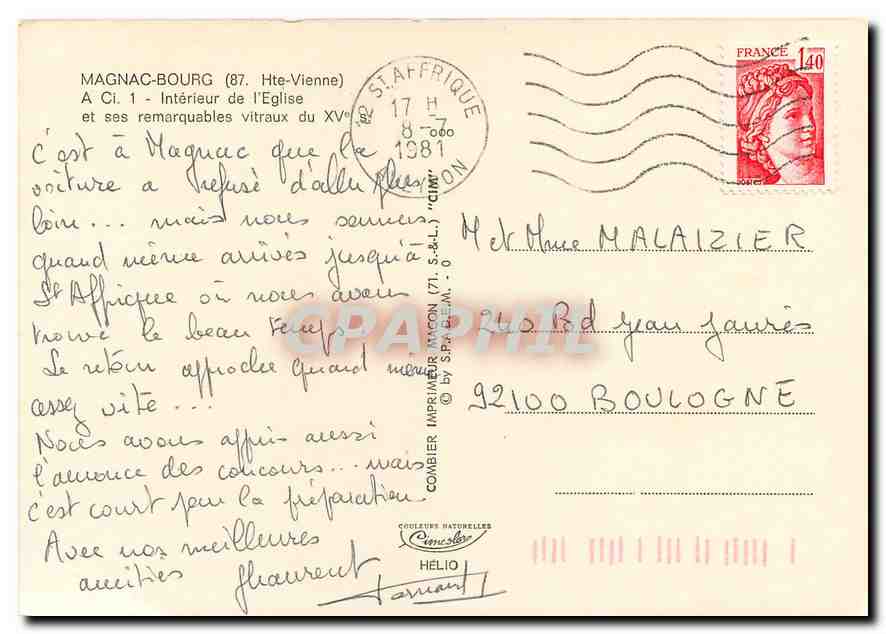 MAGNAC-BOURG (87. Hte-Vienne)
A Ci. 1 - Intérieur de l'Eglise
et ses remarquables vitraux du XVe
C'est à Magnac que la
voiture a refusé d'aller plus
loin... mais nous sommes
quand même arrivés jusqu'à
St Affrique où nous avons
trouvé le beau temps.
Le retour approche quand même
assez vite...
Nous avons appris aussi
l'annonce des concours... mais
c'est court pour la préparation
Avec nos meilleures
amitiés
12 ST. AFFRIQUE
17 H
8-7
1981
AVEYRON
FRANCE
1,40
M et Mme MALAIZIER
240 Bd Jean Jaurès
92100 BOULOGNE
COMBIER IMPRIMEUR MACON (71. S.-&-L.) "CIM"
© by S.P.A.D.E.M. - 0
CPAPHIL
COULEURS NATURELLES
Cimcolor
HÉLIO